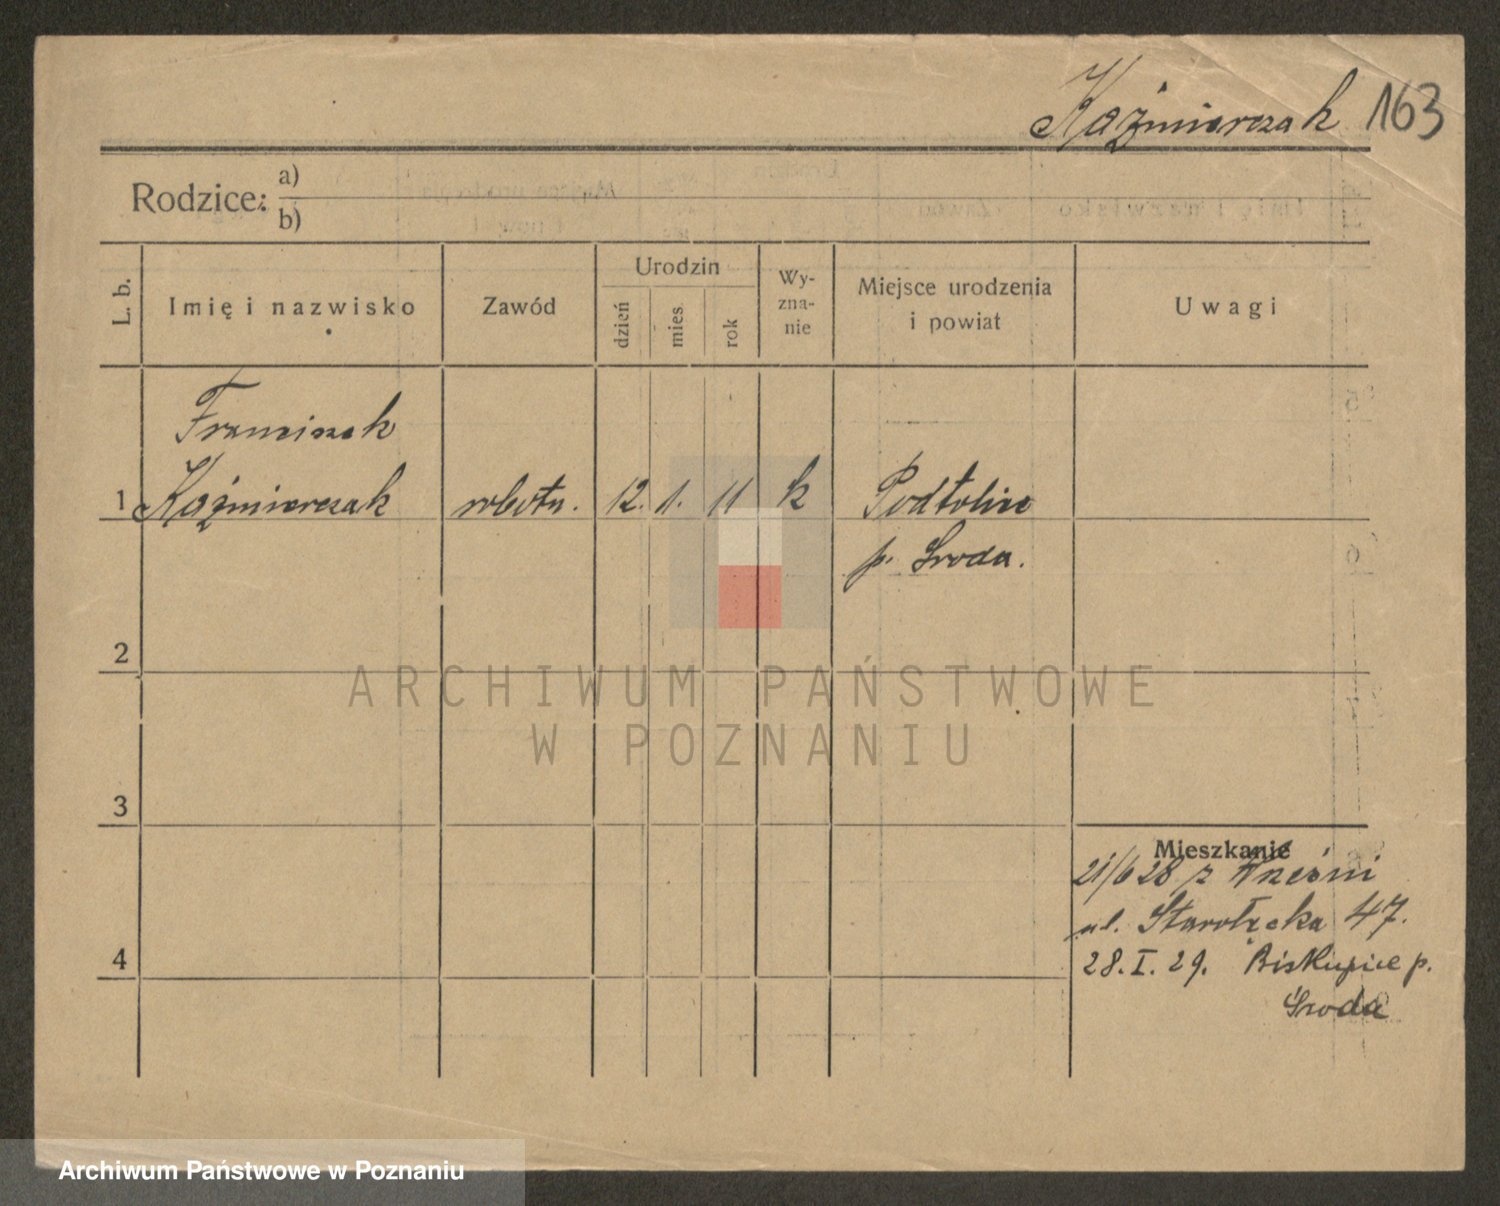 Kaźmierczak 163
Rodzice: a)
b)
L. b.
Imię i nazwisko
Zawód
Urodzin
dzień
mies.
rok
Wy-
zna-
nie
Miejsce urodzenia
i powiat
Uwagi
Franciszek
1 Kaźmierczak robotn. 12. 1. 11 k Podtolice
p. Środa.
2
ARCHIWUM PAŃSTWOWE
W POZNANIU
3
Mieszkanie
21/6 28 z Wrześni
ul. Starołęcka 47.
4
28. I. 29. Biskupice p.
Środa
Archiwum Państwowe w Poznaniu